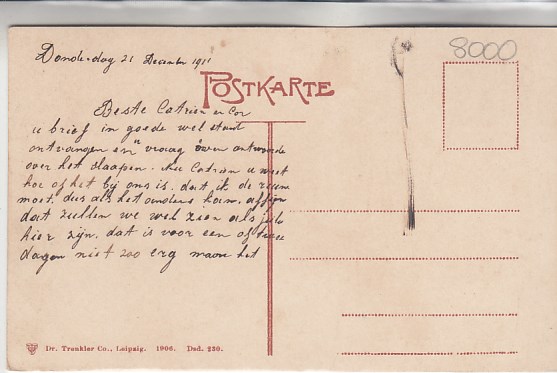 Donderdag 21 December 1911
8000
POSTKARTE
Beste Catrien en Cor
u brief in goede welstant
ontvangen en u vraag over antwoorde
over het slaapen. Nu Catrien u weet
hoe of het bij ons is. dat ik de ruim
moet. dus als het anders kan. 
dat zulden we wel zien als julie
hier zijn. dat is voor een of twee
dagen niet zoo erg maar het
Dr. Trenkler Co., Leipzig. 1906. Dsd. 230.